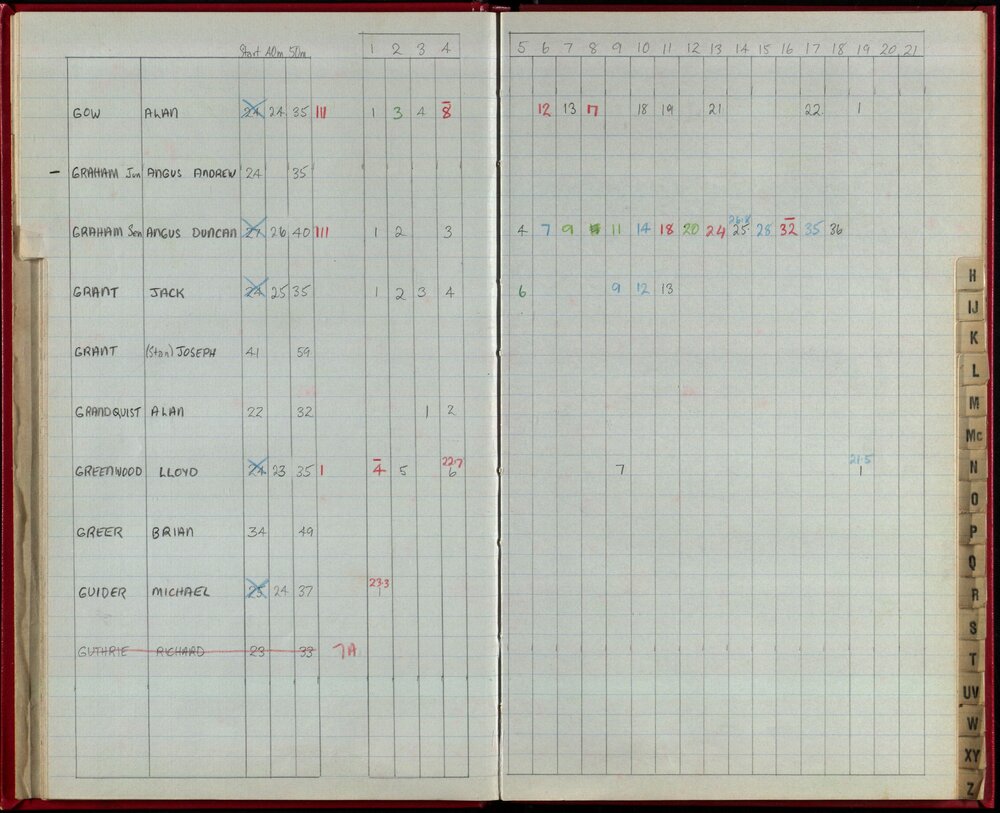 Start 40m 50m 1 2 3 4 5 6 7 8 9 10 11 12 13 14 15 16 17 18 19 20 21
GOW ALAN 24 24 35 III 1 3 4 8 12 13 17 18 19 21 22 1
– GRAHAM Jun ANGUS ANDREW 24 35
26.8
GRAHAM Sen ANGUS DUNCAN 27 26 40 III 1 2 3 4 7 9 11 14 18 20 24 25 28 32 35 36
GRANT JACK 24 25 35 1 2 3 4 6 9 12 13
GRANT (Stan) JOSEPH 41 59
GRANDQUIST ALAN 22 32 1 2
22.7 21.5
GREENWOOD LLOYD 24 23 35 I 4 5 6 7 1
GREER BRIAN 34 49
23.3
GUIDER MICHAEL 25 24 37 1
GUTHRIE RICHARD 23 33 7A
H
IJ
K
L
M
Mc
N
O
P
Q
R
S
T
UV
W
XY
Z